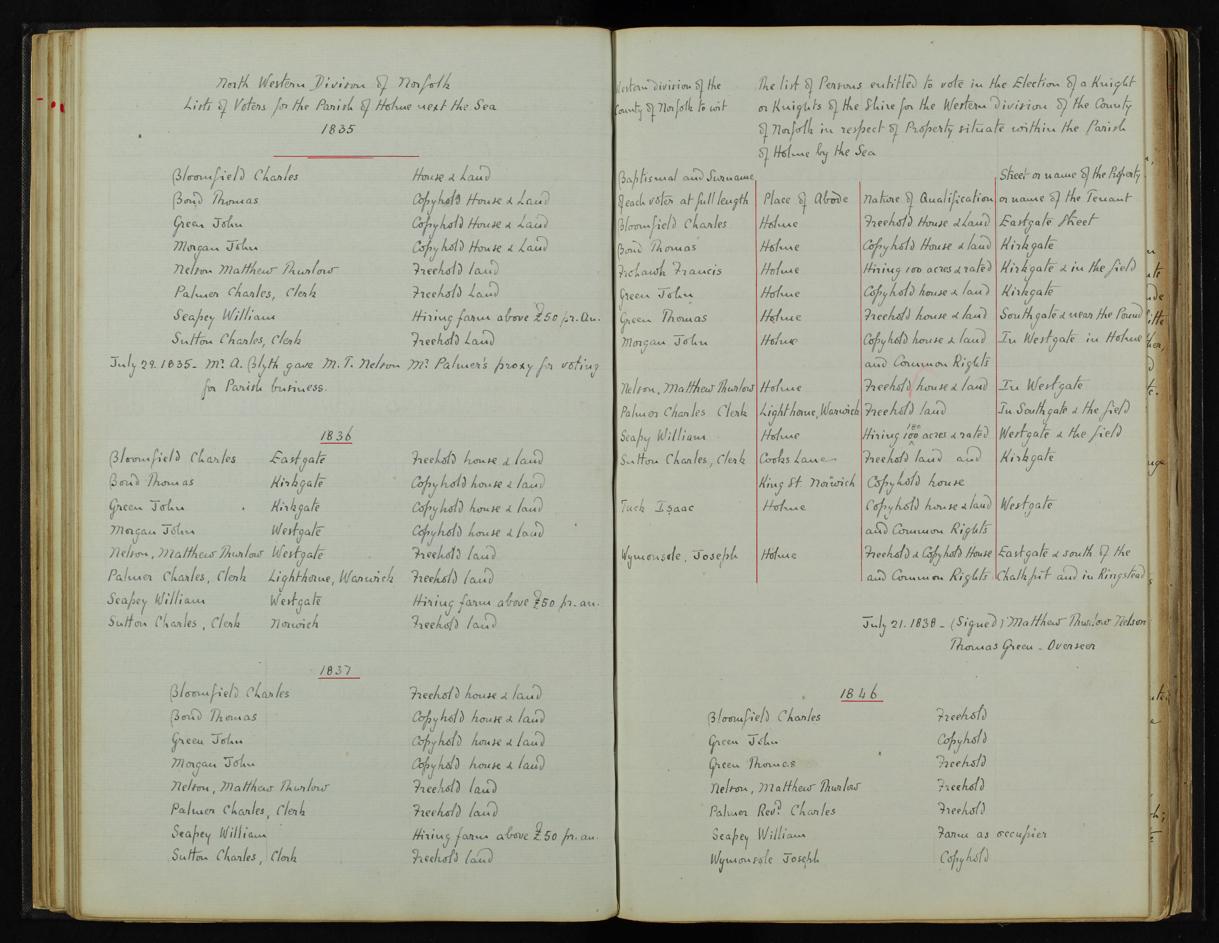 North Western Divison of Norfolk
Lists of Voters for the Parish of Holme next the Sea
1835
Bloomfield Charles House & Land
Bond Thomas Copyhold House & Land
Green John Copyhold House & Land
Morgan John Copyhold House & Land
Nelson Matthew Thurlow Freehold land
Palmer Charles, Clerk Freehold Land
Seapey William Hiring farm above £50 pr. An.
Sutton Charles, Clerk Freehold Land
July 29. 1835 - Mr. A. Blyth gave M. T. Nelson Mr. Palmer's proxy for voting
for Parish business.
1836
Bloomfield Charles Eastgate Freehold house & land
Bond Thomas Kirkgate Copyhold house & land
Green John Kirkgate Copyhold house & land
Morgan John Westgate Copyhold house & land
Nelson, Matthew Thurlow Westgate Freehold land
Palmer Charles, Clerk Lighthorne, Warwick Freehold land
Seapey William Westgate Hiring farm above £50 pr. an.
Sutton Charles, Clerk Norwich Freehold land
1837
Bloomfield Charles Freehold house & land
Bond Thomas Copyhold house & land
Green John Copyhold house & land
Morgan John Copyhold house & land
Nelson, Matthew Thurlow Freehold land
Palmer Charles, Clerk Freehold land
Seapey William Hiring farm above £50 pr. an.
Sutton Charles, Clerk Freehold land
Western division of the The list of Persons entitled to vote in the Election of a Knight
County of Norfolk to wit or Knights of the Shire for the Western division of the County
of Norfolk in respect of Property situate within the Parish
of Holme by the Sea
Baptismal and Surname Street or name of the Property
of each voter at full length Place of Abode Nature of Qualification or name of the Tenant
Bloomfield Charles Holme Freehold House & Land Eastgate Street
Bond Thomas Holme Copyhold House & land Kirkgate
Frohawk Francis Holme Hiring 100 acres & rated Kirkgate & in the field
Green John Holme Copyhold house & land Kirkgate
Green Thomas Holme Freehold house & land Southgate & near the Pound
Morgan John Holme Copyhold house & land In Westgate in Holme
and Common Rights
Nelson, Matthew Thurlow Holme Freehold house & land In Westgate
Palmer Charles Clerk Lighthorne, Warwick Freehold land In Southgate & the field
Seapy William Holme Hiring 100 acres & rated Westgate & the field
Sutton Charles, Clerk Cooks Lane Freehold land and Kirkgate
King St. Norwich Copyhold house
Tuck Isaac Holme Copyhold house & land Westgate
and Common Rights
Wymonsole, Joseph Holme Freehold & Copyhold House Eastgate & south of the
and Common Rights Chalkpit and in Ringstead
July 21. 1838 - (Signed) Matthew Thurlow Nelson
Thomas Green - Overseer
1846
Bloomfield Charles Freehold
Green John Copyhold
Green Thomas Freehold
Nelson, Matthew Thurlow Freehold
Palmer Revd. Charles Freehold
Seapey William Farm as occupier
Wymonsole Joseph Copyhold